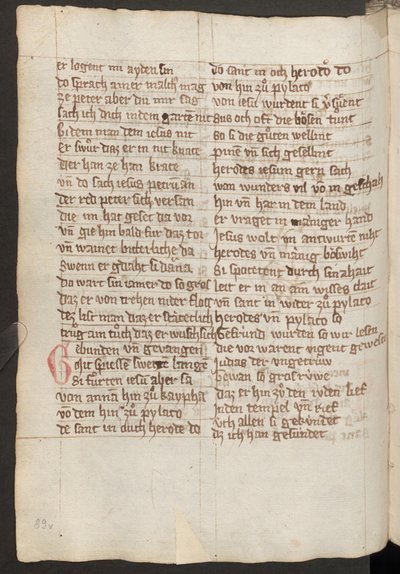 er logent mi ayden sin
do sprach ainer malchꝰ mag
ze peter aber dn mir sag
sach ich dich in dem garte nit
bi dem man dem iesus nit
er swůr daz er in nit knate
der han ze han krate
vn̄ do sach iesus petrū an
der red peter sich versan
die im hat geset da vor
vn̄ gie hin bald fur daz tor
vn̄ wainet bitterliche da
Swenn er gdaht si dāna
do wart sin iamer do so gros
daz er von trehen nider flos
dez list man daz er stateclich
trůg ain tůch daz er wusch sich
Gebunden vn̄ gevangen
Mit spiesse swerte lange
Si fůrten iesū aber sa
von anna hin zů kayphā
vō dem hin zů pylato
de sant in ouch herode do
do sant in och herodꝰ do
von hin zů pylato
von iesu wurdent si vͥgūent
Sus och oft die bôsen tunt
so si die gůten wellint
pine vn̄ sich gesellint
herodes iesum gern sach
won wunders vil vō in geschah
vn̄ han har in dem land
er vraget in māiger hand
Jesus wolt im antwurtē niht
herodes vn̄ mānig bôswiht
Si spottent durch sin ahait
leit er in an ain wisses clait
vn̄ sant in wider zů pylato
herodes vn̄ pylato so
Gefrund wurden so wir lesen
die vor warent vigent gewesē
Judas der ungetruw
gewan so gros ruwe
daz er hin zů den iuden lief
in den tempel vn̄ rief
uch allen si gekundet
dz ich han gesundet
89v